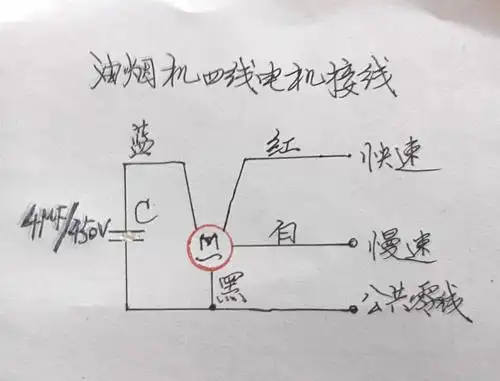 油烟机四线电机接线
蓝
红
快速
4MF/450V
C
M
白
慢速
黑
公共零线